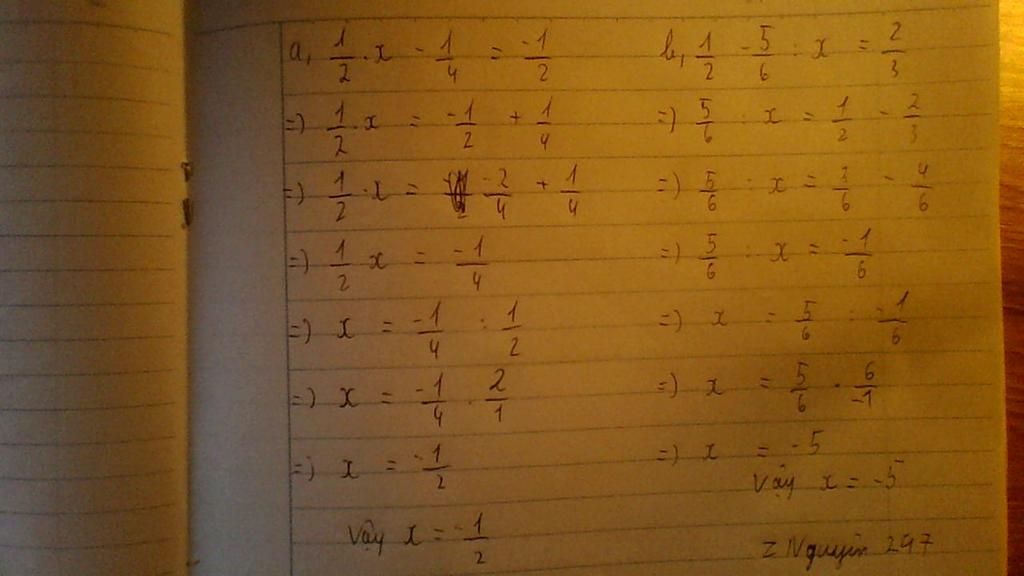 a, 1/2 . x - 1/4 = -1/2
=) 1/2 . x = -1/2 + 1/4
=) 1/2 . x = -2/4 + 1/4
=) 1/2 x = -1/4
=) x = -1/4 : 1/2
=) x = -1/4 . 2/1
=) x = -1/2
Vậy x = -1/2
b, 1/2 - 5/6 : x = 2/3
=) 5/6 : x = 1/2 - 2/3
=) 5/6 : x = 3/6 - 4/6
=) 5/6 : x = -1/6
=) x = 5/6 : -1/6
=) x = 5/6 . 6/-1
=) x = -5
Vậy x = -5
z Nguyên 247